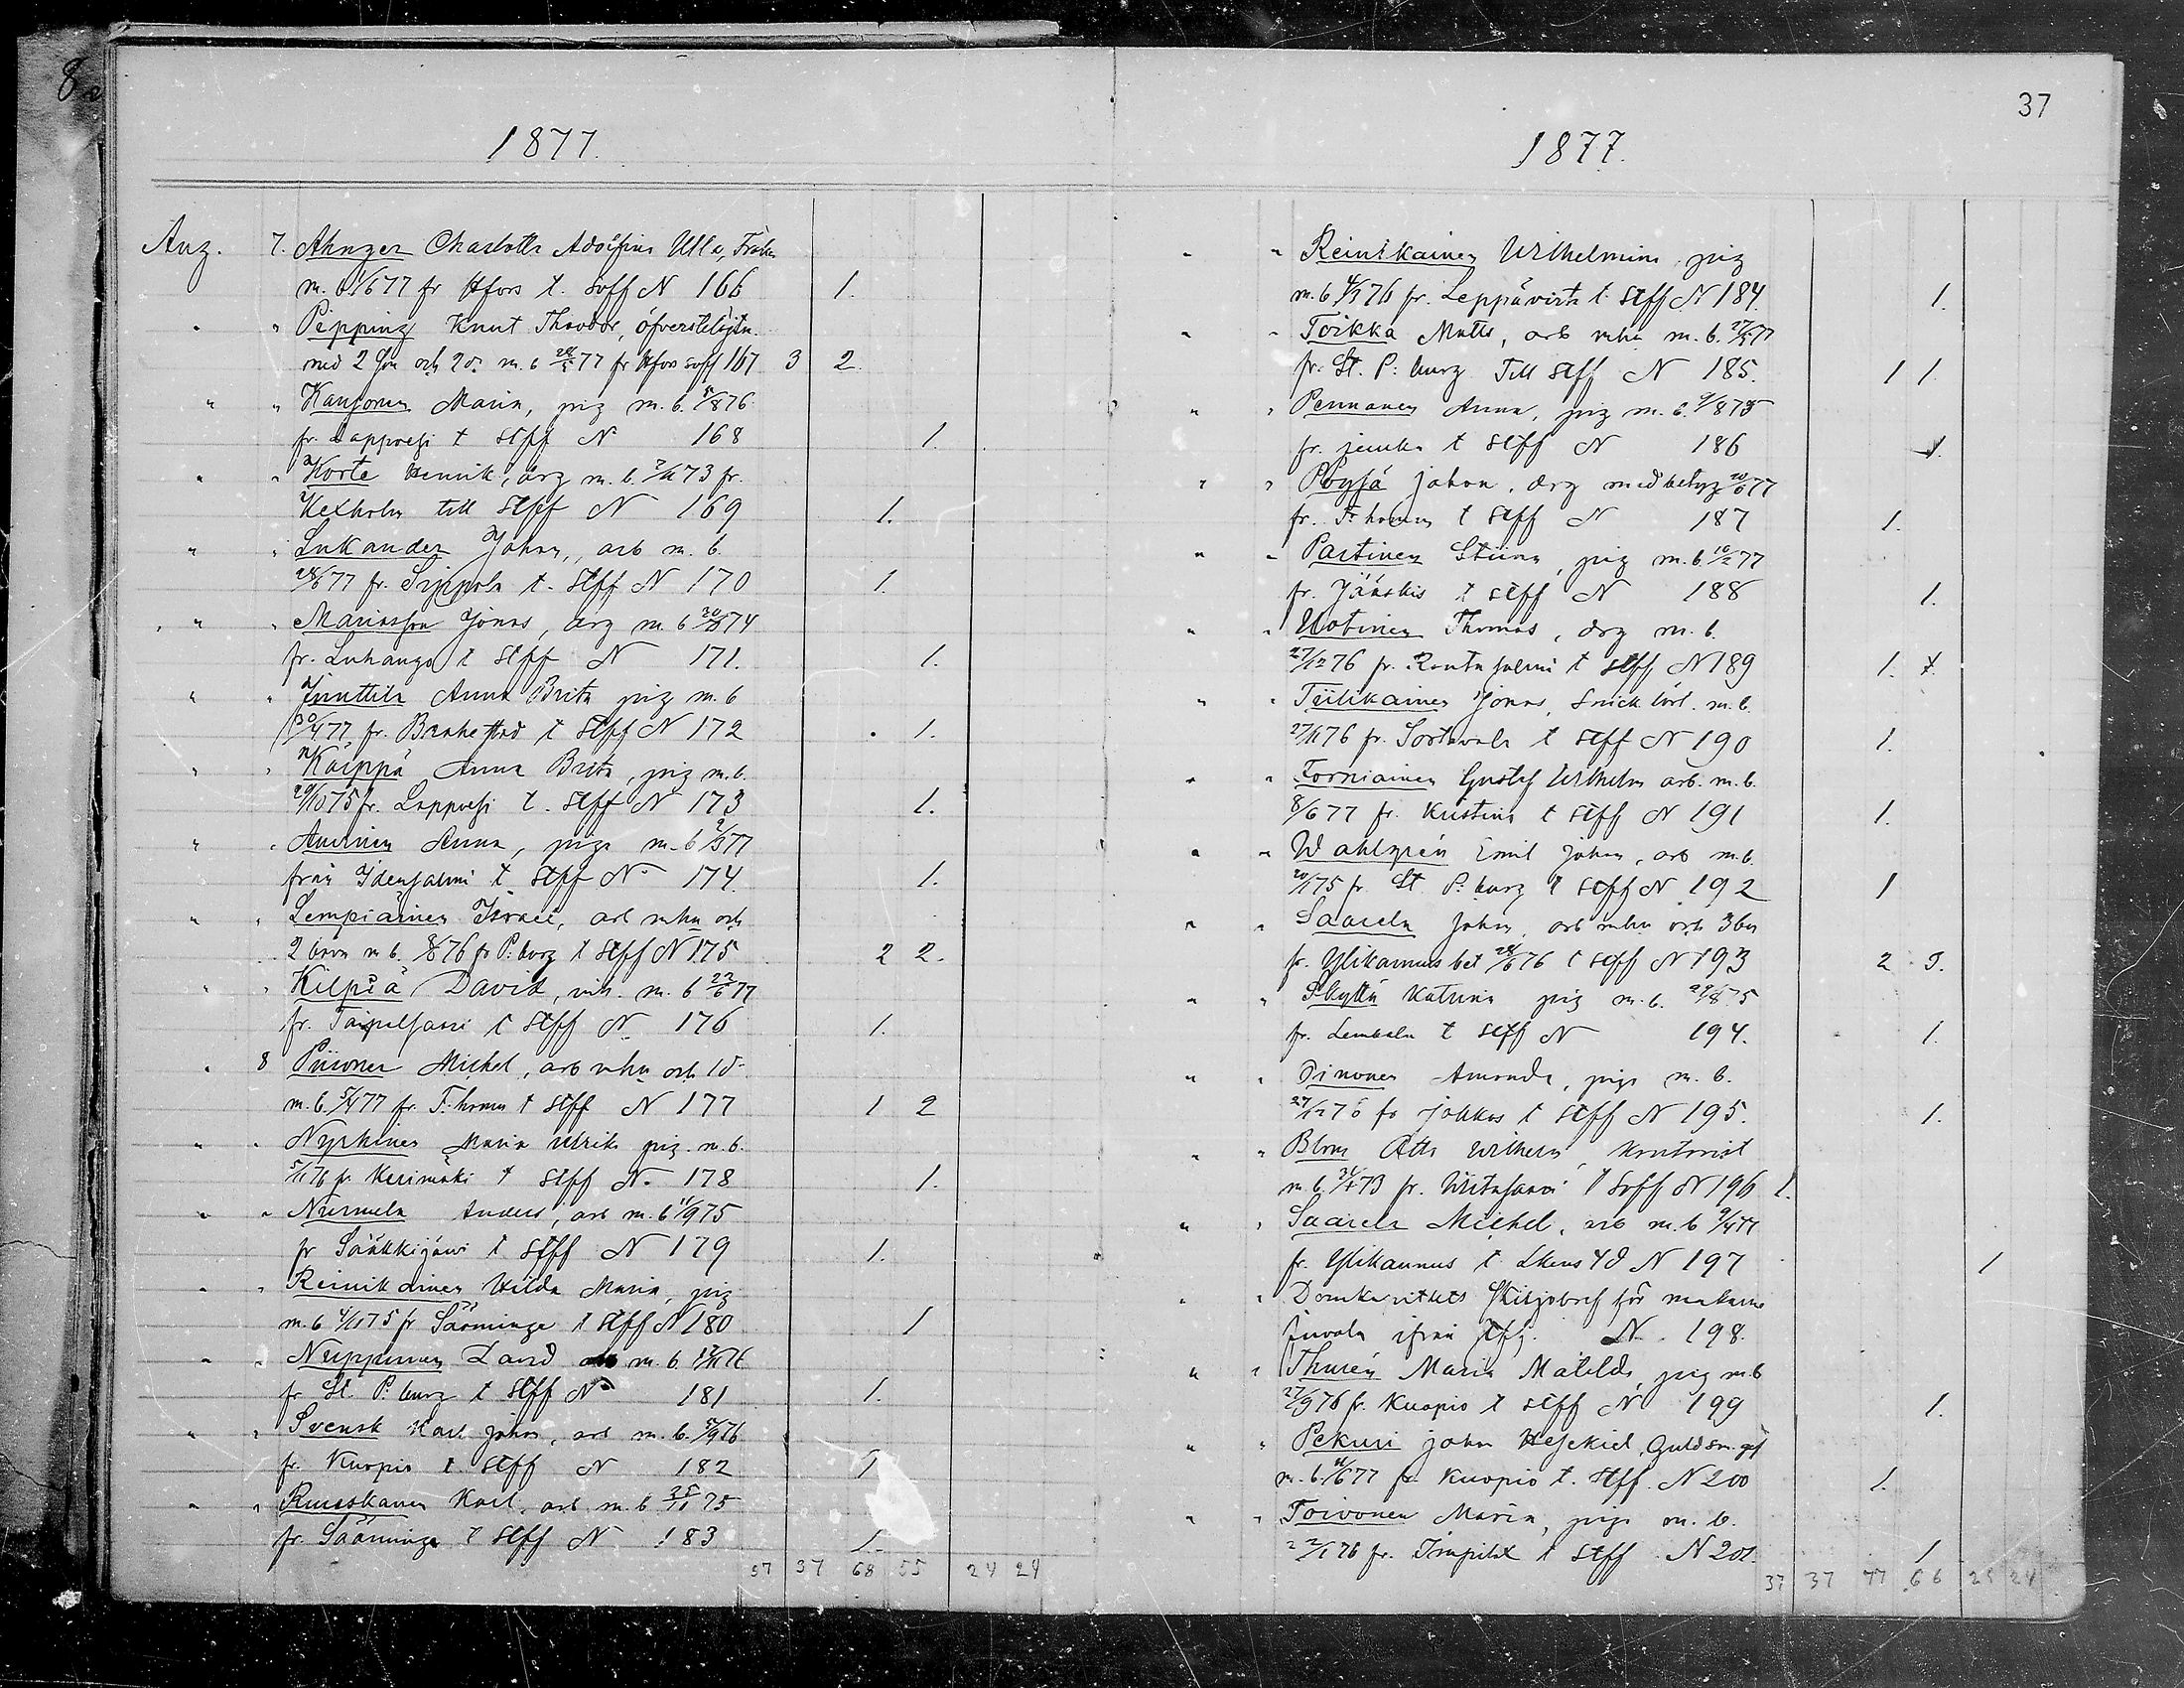 37
1877.
Aug. 7. Ahnger Charlotta Adolfina Ulla, Frök
m. b 1/6 77 fr Hfors t. Soff N 166 1.
" " Pipping Knut Theodor, öfverstelöjtn.
med 2 Sön och 2 d. m. b 28/5 77 fr Hfors soff 167 3 2.
" " Kansonen Maria, pig m. b. 5/8 76
fr. Lappvesi t Stff N 168 1.
" " Korte Henrik, drg m. b. 73 fr.
Kexholm till Stff N 169 1.
" " Lukander Johan, arb m. b.
28/6 77 fr. Sippola t. Stff N 170 1.
" " Mariasson Jonas, drg m. b 74
fr. Luhango t Stff N 171. 1.
" " Junttila Anna Brita pig m. b
30/4 77 fr. Brahestad t Stff N 172 1.
" " Käippä Anna Brita, pig m. b.
29/10 75 fr. Lappvesi t. Stff N 173 1.
" " Auvinen Anna, piga m. b 2/3 77
från Idensalmi t Stff N 174. 1.
" " Lempiäinen Israel, arb mhu och
2 barn m b. 76 fr P:burg t Stff N 175 2 2.
" " Kilpiä David, m. b 22/6 77
fr. Taipalsaari t Stff N 176 1.
" 8 Piironen Michel, arb mhu och 1 d
m. b. 5/4 77 fr. F:hamn t Stff N 177 1 2
" " Nyrhinen Maria Ulrika pig. m. b.
5/11 76 fr. Kerimäki t Stff N. 178 1.
" " Nurmela Anders, arb m. b 11/9 75
fr Säkkijärvi t Stff N 179 1.
" " Reinikainen Hilda Maria, pig
m. b 4/10 75 fr Sääminge t Stff N 180 1
" " Nuppunen David m. b. 76
fr St. P:burg t Stff N 181 1.
" " Svensk Karl Johan, arb m. b. 5/9 76
fr. Kuopio t. Stff N 182 1
" " Ruuskanen Karl, arb m. b 25/11 75
fr. Sääminge t Stff N 183 1.
37 37 68 55 24 24
1877.
" " Reinikainen Wilhelmina pig
m. b 76 fr. Leppävirta t. Stff N 184. 1.
" " Toikka Matts, arb mhu m. b. 27/5 77
fr. St. P:burg till Stff N 185. 1 1.
" " Pennanen Anna, pig m. b. 9/8 75
fr. t Stff N 186 1.
" " Pöysä Johan, drg med betyg 20/6 77
fr. F:hamn t Stff N 187 1.
" " Partinen Stiina, pig m. b 10/2 77
fr. Jääskis t Stff N 188 1.
" " Uotinen Thomas, drg m. b.
27/12 76 fr. Rantasalmi t Stff N 189 1.
" " Tiilikainen Jonas, Snick lärl. m. b.
27/11 76 fr. Sordavala t Stff N 190 1.
" " Torniainen Gustaf Wilhelm arb. m. b.
8/6 77 fr. Kristina t Stff N 191 1.
" " Wahlgrén Emil Johan, arb m. b.
20/1 75 fr. St. P:burg t Stff N 192 1
" " Saarela Johan, arb mhu och 3 bn
fr. Ylikannus bet 28/6 76 t Stff N 193 2 3.
" " Skyttä Katrina pig m. b. 29/8 75
fr. Lembala t Stff N 194. 1.
" " Oinonen Amanda, piga m. b.
27/12 76 fr Jokkas t Stff N 195. 1.
" " Blom Otto Wilhelm Kontorist
m. b. 73 fr. Viitasaari t Soff N 196 1.
" " Saarela Michel, arb m. b 9/4 77
fr. Ylikannus t. Lkens 4 d N 197 1
" " Domkapitlets Skiljobref för makarne
Juvola ifrån Stff. N. 198.
" " Thurén Maria Matilda, pig m b
27/9 76 fr. Kuopio t Stff N 199 1.
" " Pekuri Johan Hesekiel, Guldsm. ges
m. b. 11/6 77 fr. Kuopio t. Stff. N 200 1.
" " Toivonen Maria, piga m. b.
22/1 76 fr. Impilax t Stff N 201. 1
37 37 77 66 25 24